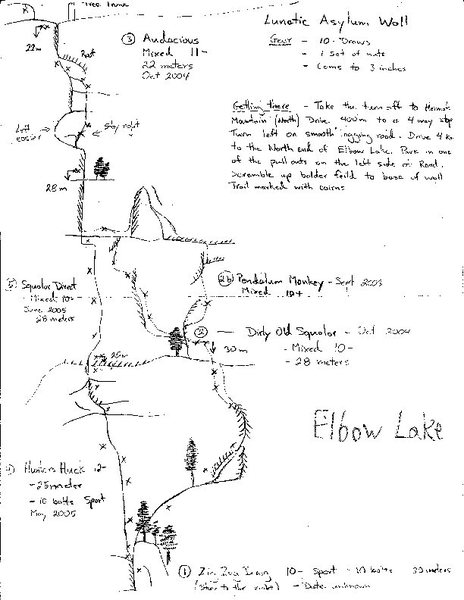 Tree
22m
Roof
③ Audacious
Mixed 11-
22 meters
Oct 2004
Lunatic Asylum Wall
Gear - 10 Draws
- 1 Set of nuts
- Cams to 3 inches
Left
easier
Stay right
28m
Getting there - Take the turn off to
Mountain (North) Drive. 400m to a 4 way stop
Turn left on smooth logging road. Drive 4k
to the North end of Elbow Lake. Park in one
of the pull outs on the left side of Road.
Scramble up bolder feild to base of wall
Trail marked with cairns
Squalor Direct
- Mixed 10-
June 2005
28 meters
②b Pendulum Monkey - Sept 2003
Mixed 10+
② - Dirty Old Squalor - Oct 2004
- Mixed 10-
- 28 meters
30m
25m
Elbow Lake
Huck
- 25 meter
- 10 bolts Sport
May 2005
① Zig Zag 10- Sport - 10 bolts 30 meters
(Stay to the right) - Date unknown